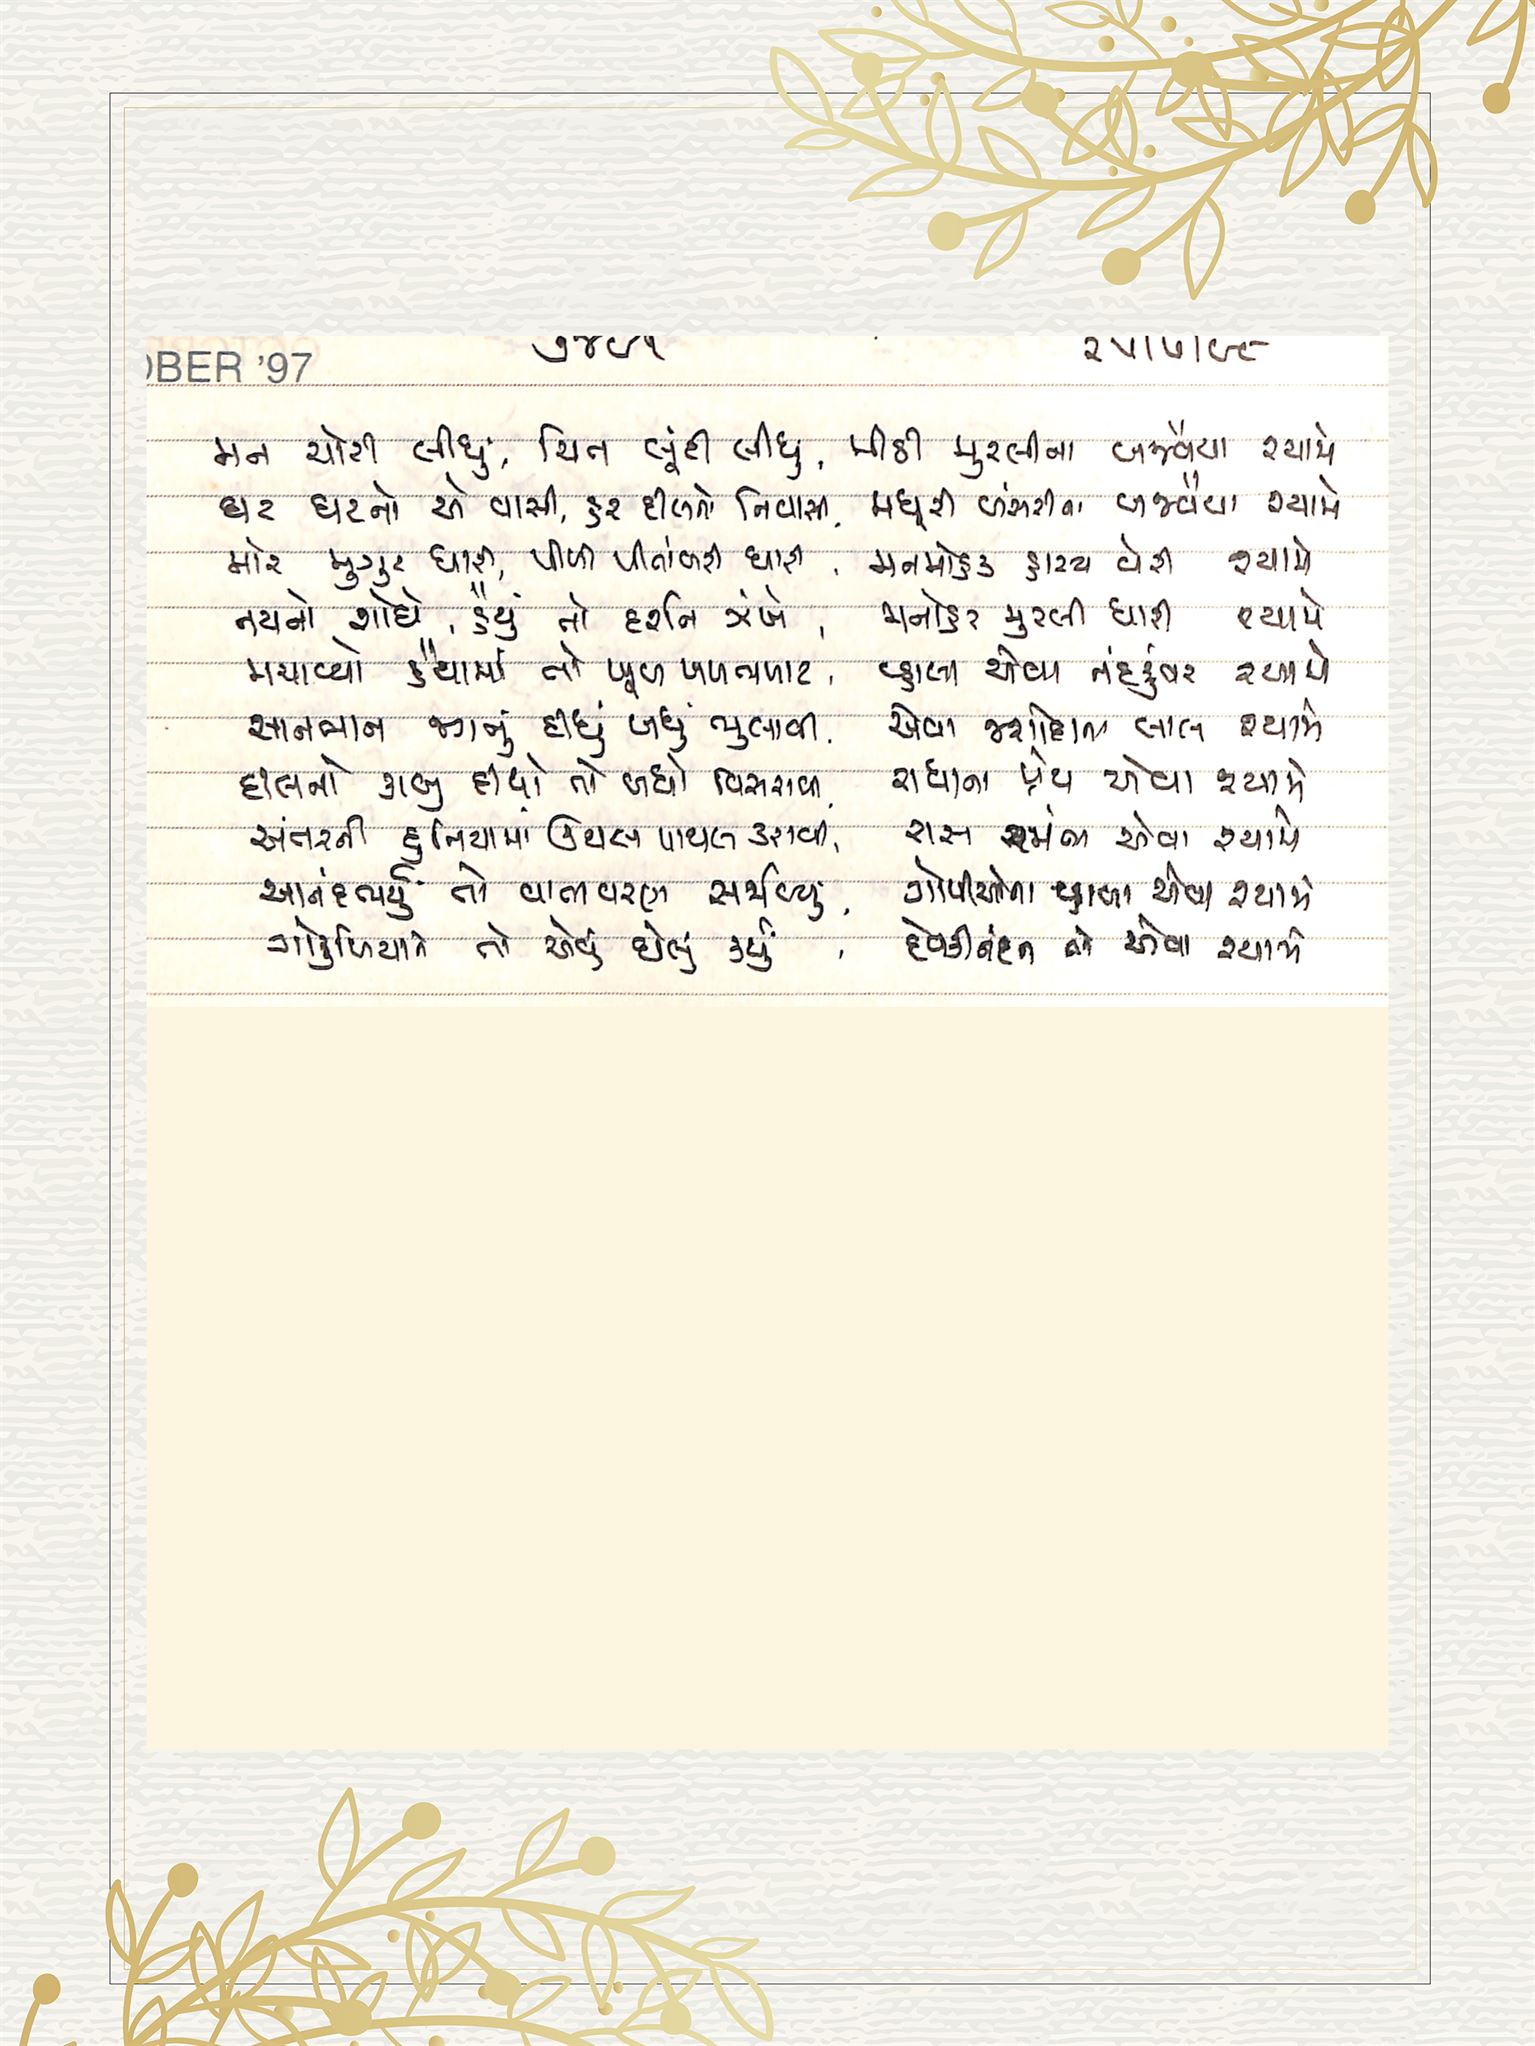 OBER '97 ૭૪૯૧ ૨૫|૫|૯૮
મન ચોરી લીધું, ચિત લૂંટી લીધુ, મીઠી મુરલીના બજવૈયા શ્યામે
ઘટ ઘટનો એ વાસી, હર દીલનો નિવાસી, મધૂરી બંસરીના બજવૈયા શ્યામે
મોર મુગુટ ધારી, પીળી પીતાંબરી ધારી, મનમોહક હાસ્ય વેરી શ્યામે
નયનો શોધે, હૈયું તો દર્શન ઝંખે, મનોહર મુરલી ધારી શ્યામે
મચાવ્યો હૈયામાં તો ખૂબ ખળભળાટ, વ્હાલા એવા નંદકુંવર શ્યામે
સાનભાન જગનું દીધું બધું ભુલાવી, એવા જશોદાના લાલ શ્યામે
દીલનો કાબુ દીધો તો બધો વિસરાવી, રાધાના પ્રેય એવા શ્યામે
અંતરની દુનિયામાં ઉથલ પાથલ કરાવી, રાસ એવા શ્યામે
આનંદભર્યું તો વાતાવરણ સર્જાવ્યું, ગોપીઓના વ્હાલા એવા શ્યામે
ગોકુળિયાને તો એવું ઘેલું કર્યું, દેવકીનંદન એવા શ્યામે